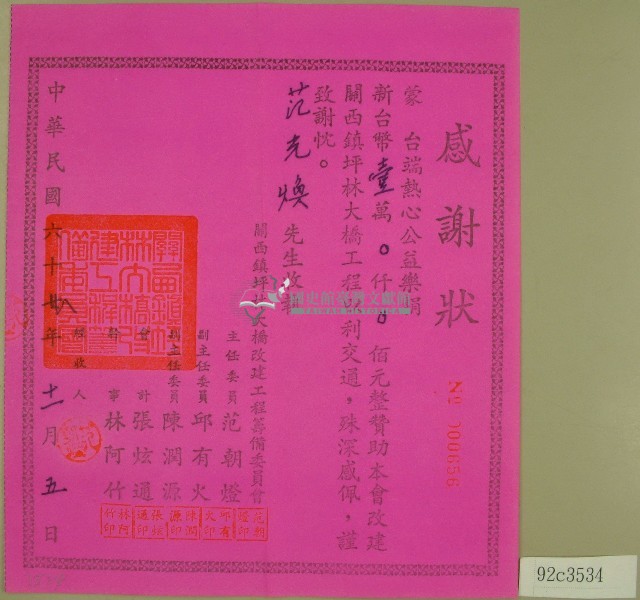 感謝狀
№ 000656
蒙　台端熱心公益樂捐
新台幣壹萬0仟0佰元整贊助本會改建
關西鎮坪林大橋工程以利交通，殊深感佩，謹
致謝忱。
范光煥 先生收執
關西鎮坪林大橋改建工程籌備委員會
主任委員 范朝燈
副主任委員 邱有火
副主任委員 陳潤源
會計 張炫通
幹事 林阿竹
經收人
中華民國六十八年十一月五日
國史館臺灣文獻館
TAIWAN HISTORICA
92c3534